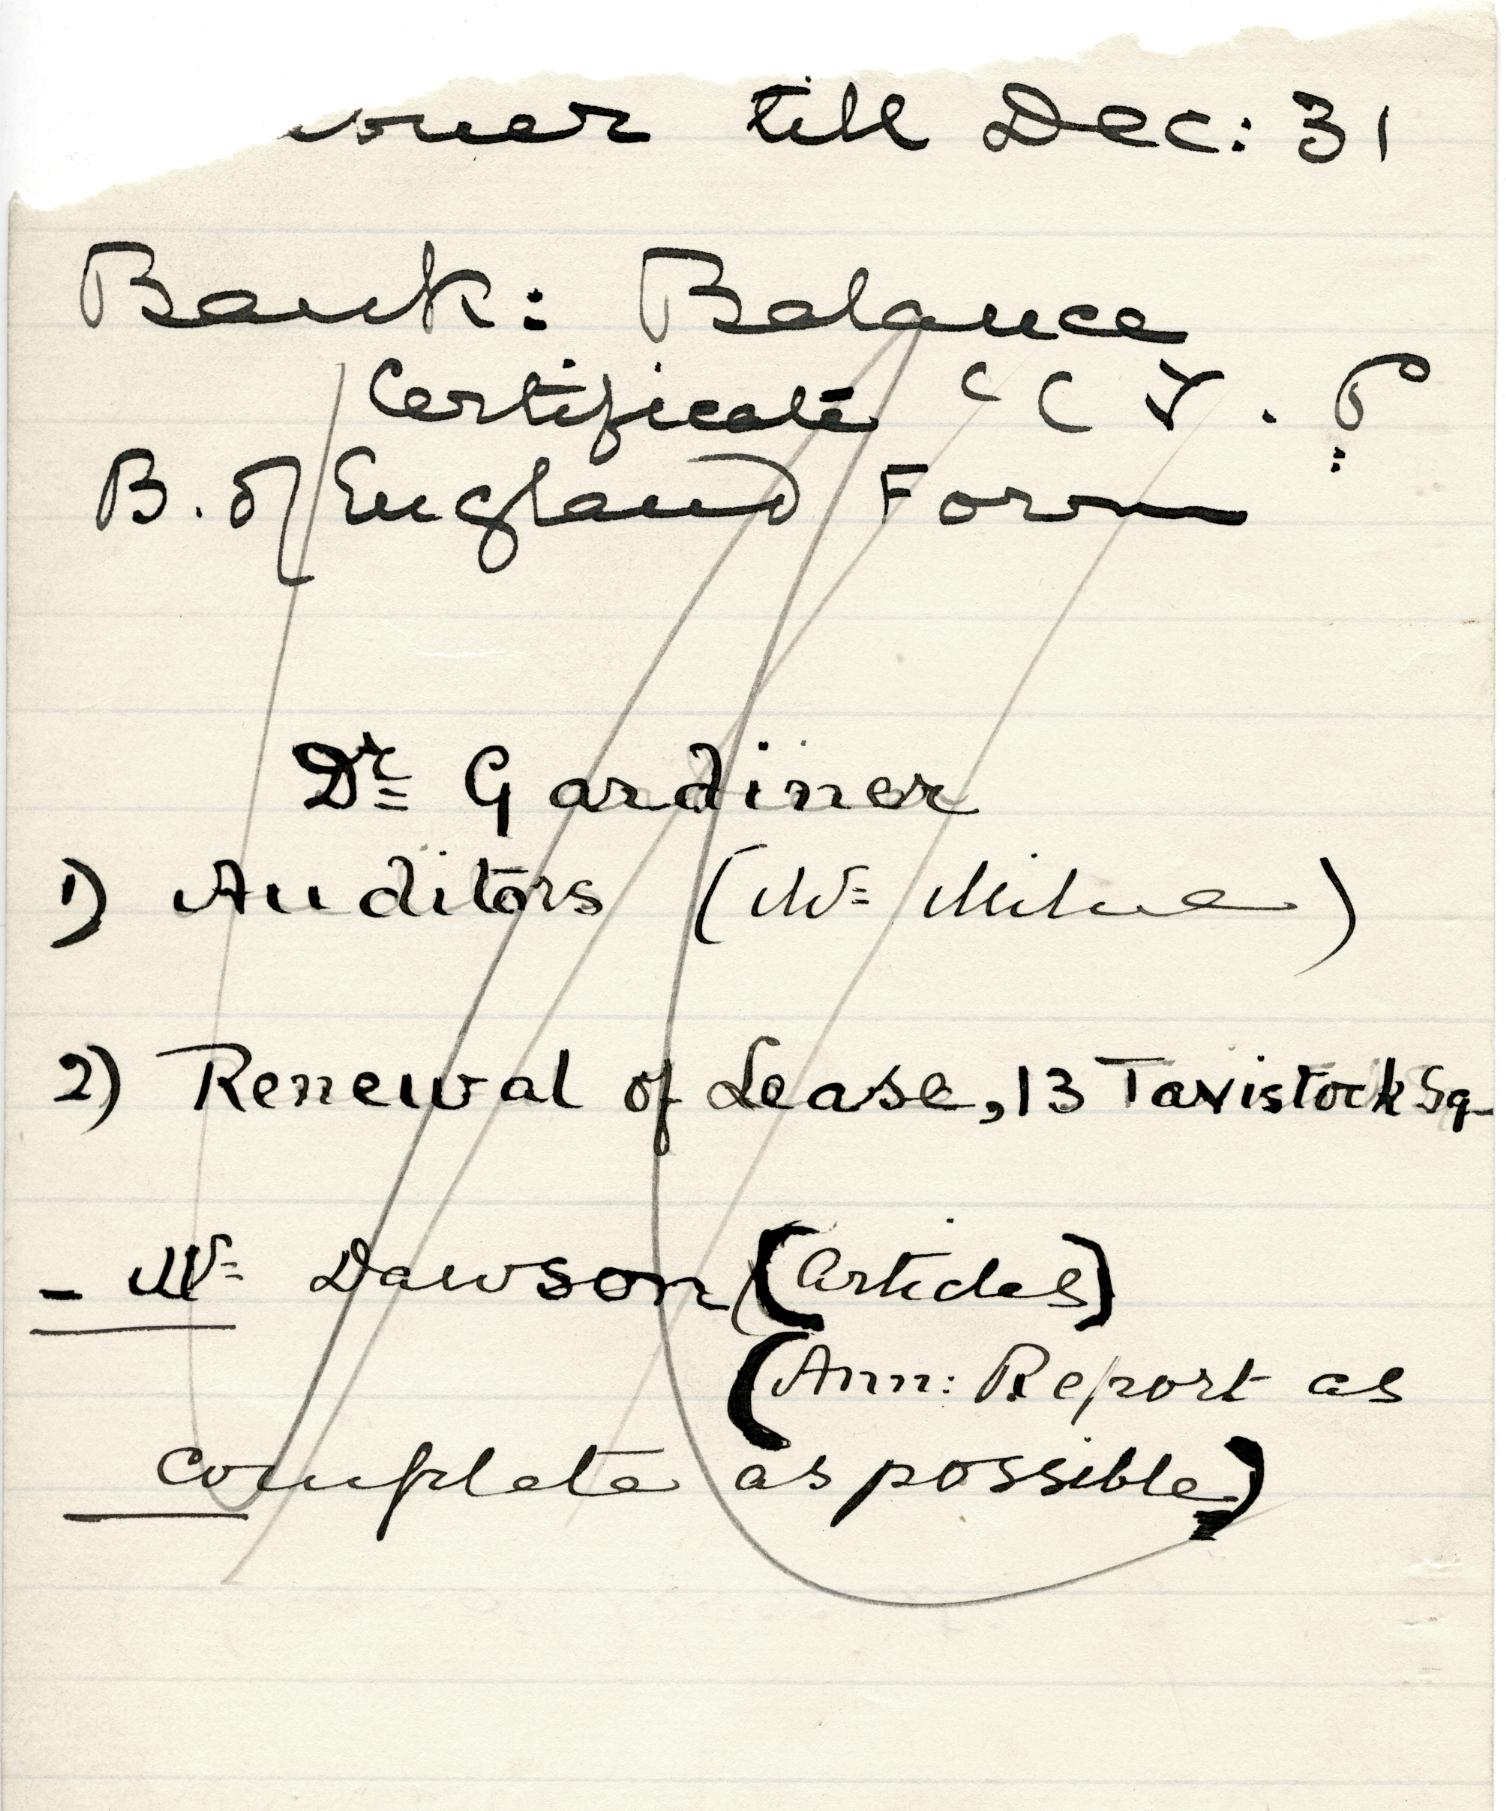 till Dec: 31
Bank: Balance
Certificate
B. of England Form
Dr Gardiner
1) Auditors (Mr Milne)
2) Renewal of Lease, 13 Tavistock Sq
- Mr Dawson (Articles)
(Ann: Report as
complete as possible)